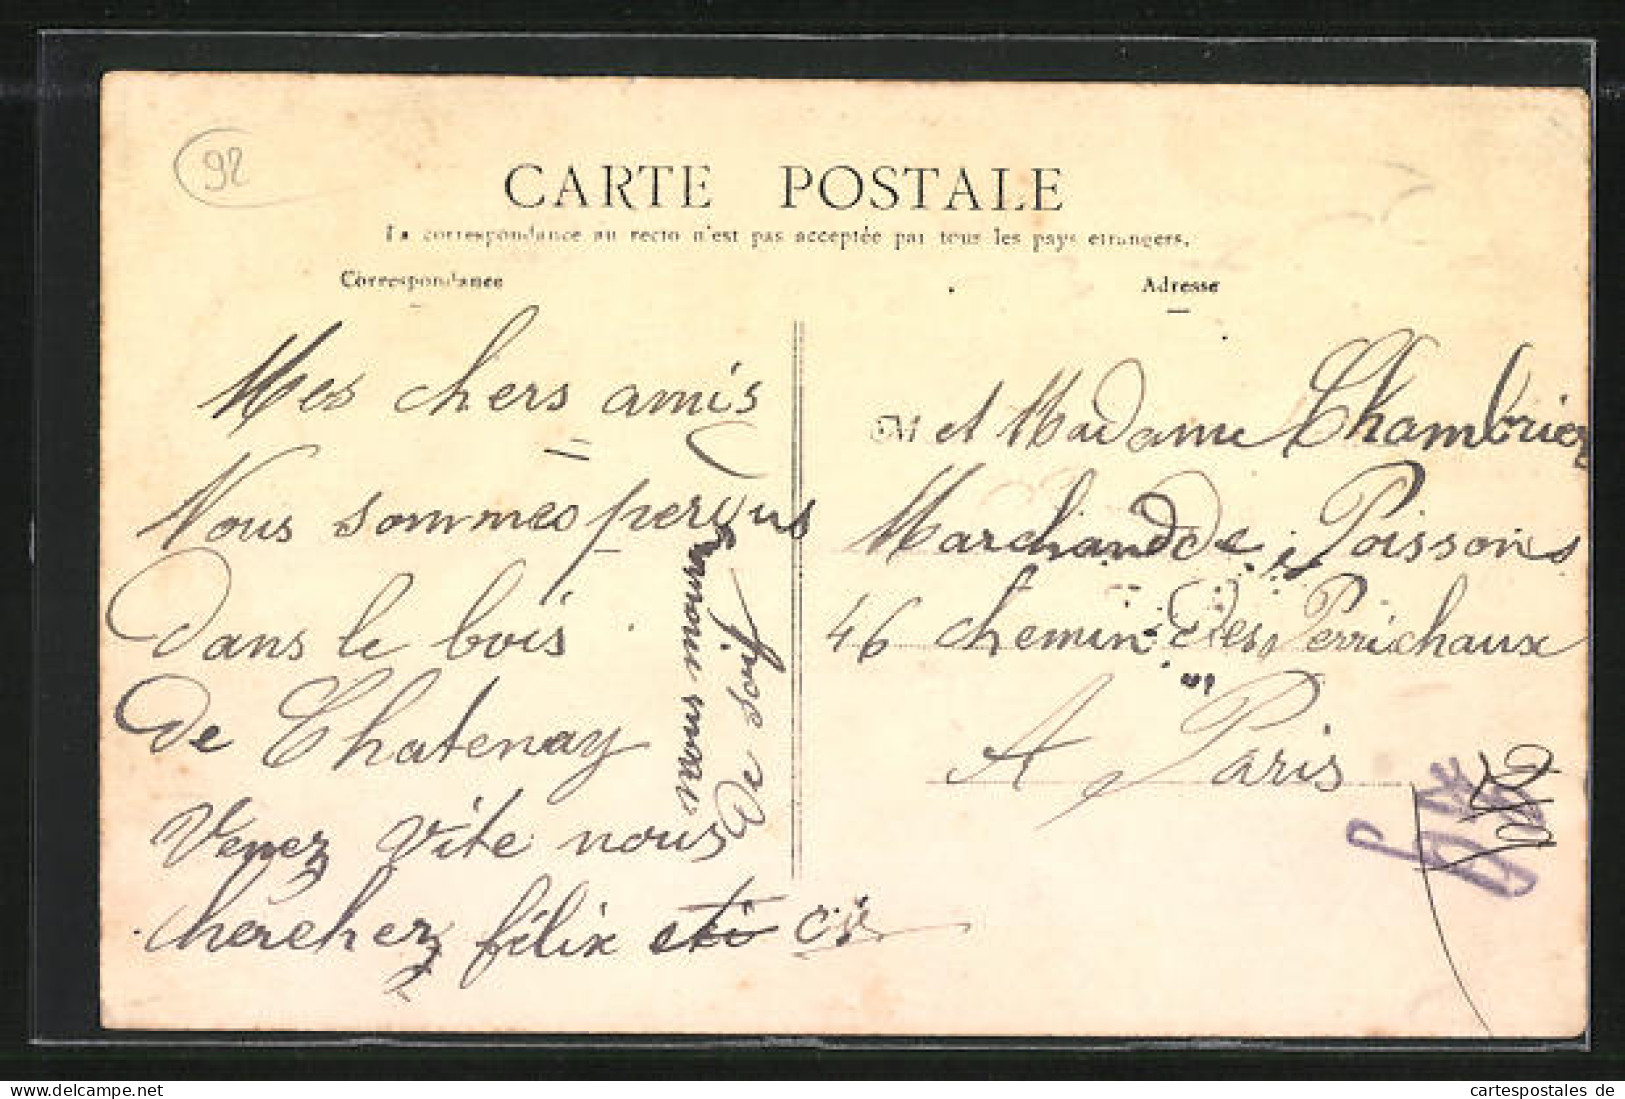 92
CARTE POSTALE
La correspondance au recto n'est pas acceptée par tous les pays etrangers.
Correspondance
Adresse
Mes chers amis
Nous sommes perdus
dans le bois
de Chatenay
Venez vite nous
cherchez félix et cie
nous mourrons
de soif
M et Madame Chambrier
Marchand de Poissons
46 chemin des Perrichaux
A Paris
cartespostales de